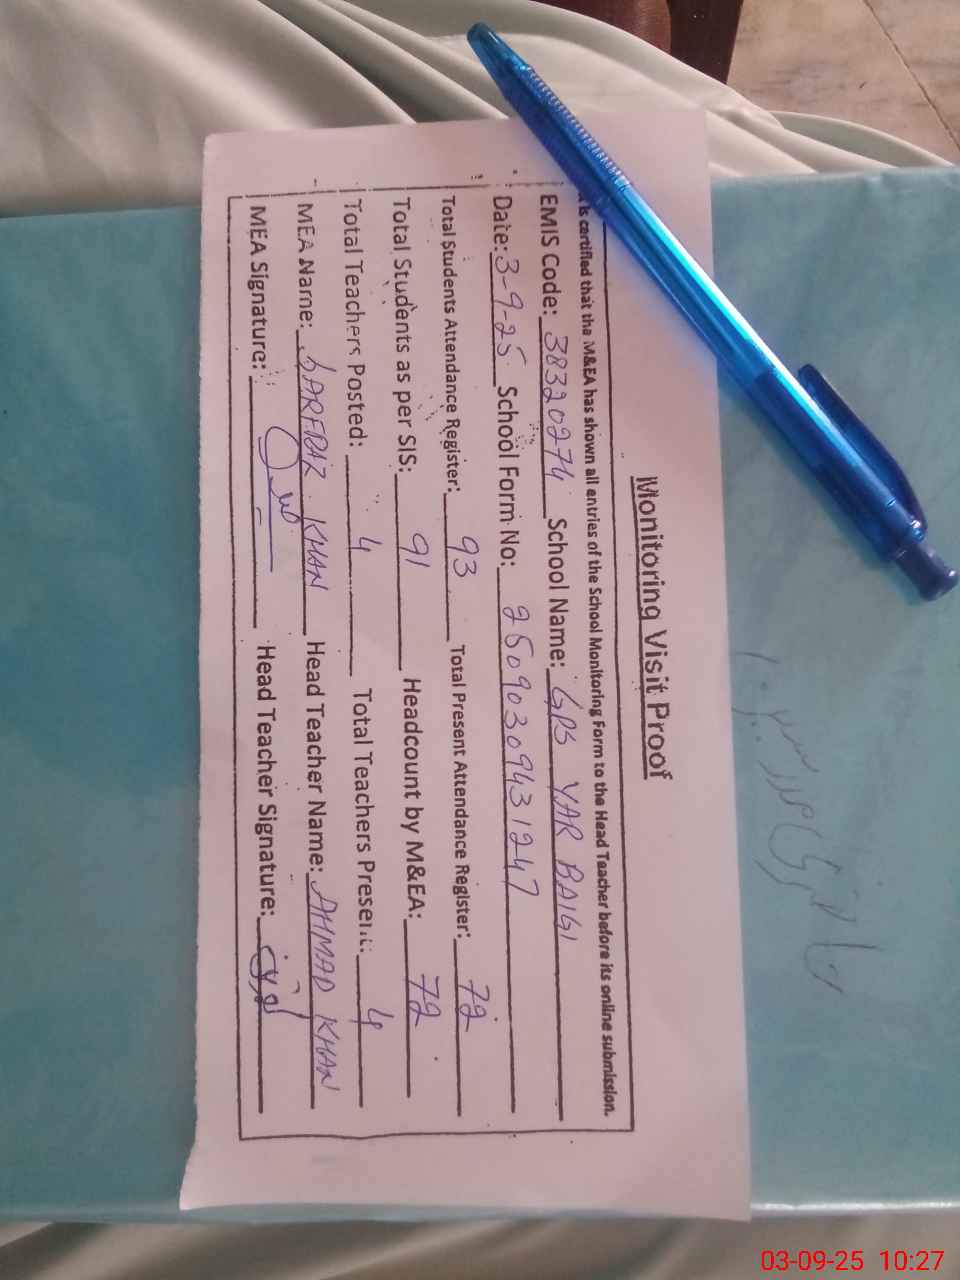 Monitoring Visit Proof
is certified that the M&EA has shown all entries of the School Monitoring Form to the Head Teacher before its online submission.
EMIS Code: 38320274 School Name: GPS YAR BAIG
Date: 3-9-25 School Form No: 25090309431247
Total Students Attendance Register: 93 Total Present Attendance Register: 72
Total Students as per SIS: 91 Headcount by M&EA: 72
Total Teachers Posted: 4 Total Teachers Present: 4
MEA Name: SARFRAZ KHAN Head Teacher Name: AHMAD KHAN
MEA Signature: Head Teacher Signature:
03-09-25 10:27